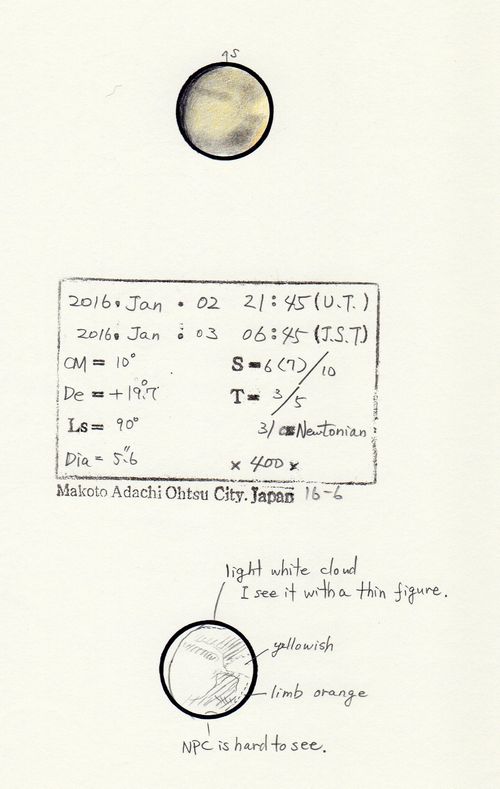 ↑S
2016. Jan . 02 21:45 (U.T.)
2016. Jan : 03 06:45 (J.S.T)
CM = 10° S = 6(7)/10
De = +19.°7 T = 3/5
Ls = 90° 31 cm Newtonian
Dia = 5."6 × 400 ×
Makoto Adachi Ohtsu City. Japan 16-6
light white cloud
I see it with a thin figure.
yellowish
limb orange
NPC is hard to see.